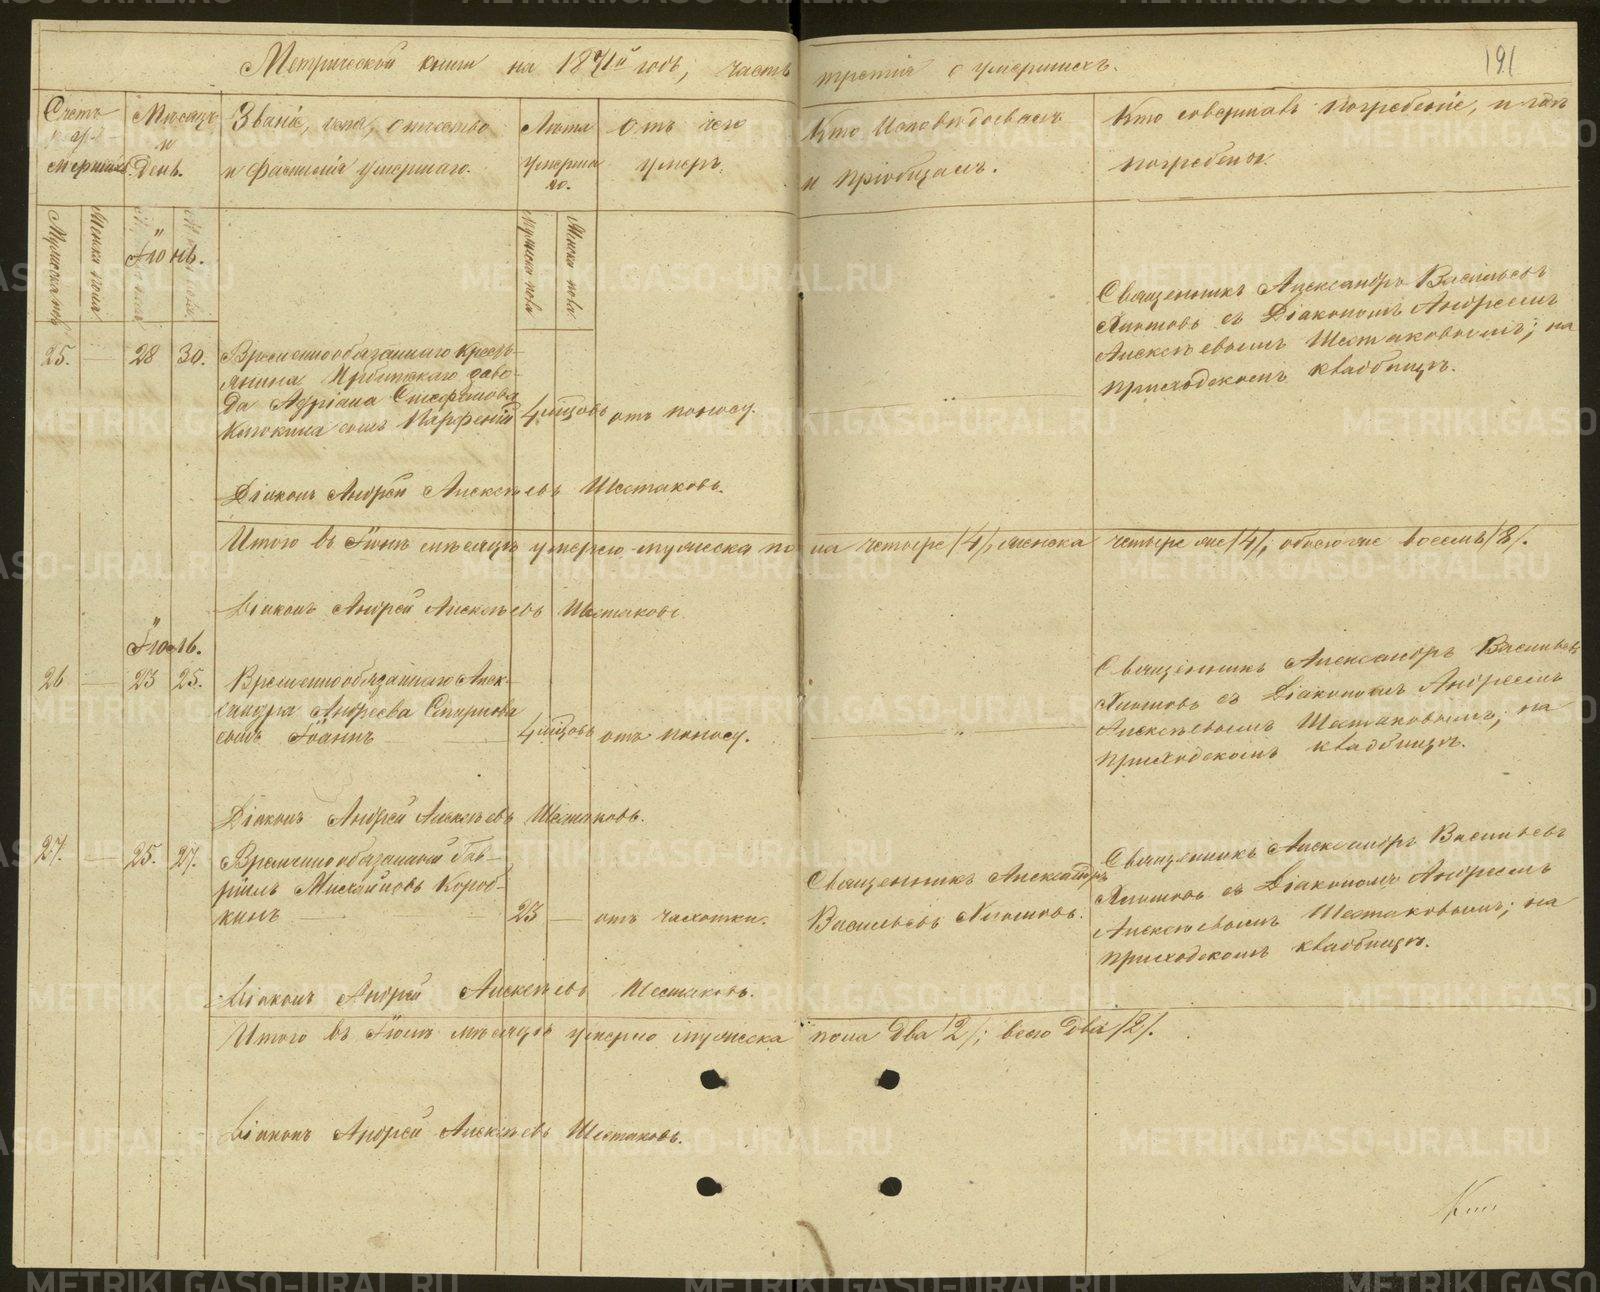 Метрической книги на 1871й годъ, часть третія о умершихъ.
191
Счетъ умершихъ.
Мѣсяцъ и День.
Званіе, имя, отчество и фамилія умершаго.
Лѣта умершаго.
Отъ чего умеръ.
Кто исповѣдовалъ и пріобщалъ.
Кто совершалъ погребеніе, и гдѣ погребены.
Мужеска пола
Женска пола
Мужеска пола
Женска пола
Іюнь.
25. — 28 30.
Временнообязаннаго кресть-
янина Ирбитскаго заво-
да Адріана Стефанова
сынъ Парфеній
4 мѣсцовъ
отъ поносу.
Священникъ Александръ Васильевъ
Хлыновъ съ Діакономъ Андреемъ
Алексѣевымъ Шестаковымъ; на
приходскомъ кладбищѣ.
Діаконъ Андрей Алексѣевъ Шестаковъ.
Итого въ Іюнѣ мѣсяцѣ умерло мужеска пола четыре /4/, женска четыре же /4/, обоего же восемь /8/.
Діаконъ Андрей Алексѣевъ Шестаковъ
Іюль.
26 — 23 25.
Временнообязаннаго Алек-
сандра Андреева Смирнова
сынъ Іоаннъ
4 мѣсцовъ
отъ поносу.
Священникъ Александръ Васильевъ
Хлыновъ съ Діакономъ Андреемъ
Алексѣевымъ Шестаковымъ; на
приходскомъ кладбищѣ.
Діаконъ Андрей Алексѣевъ Шестаковъ.
27. — 25. 27.
Временнообязанный Гав-
ріилъ Михайловъ Короб-
кинъ
23 —
отъ чахотки.
Священникъ Александръ
Васильевъ Хлыновъ.
Священникъ Александръ Васильевъ
Хлыновъ съ Діакономъ Андреемъ
Алексѣевымъ Шестаковымъ; на
приходскомъ кладбищѣ.
Діаконъ Андрей Алексѣевъ Шестаковъ.
Итого въ Іюлѣ мѣсяцѣ умерло мужеска пола два /2/; всего два /2/.
Діаконъ Андрей Алексѣевъ Шестаковъ.
METRIKI.GASO-URAL.RU